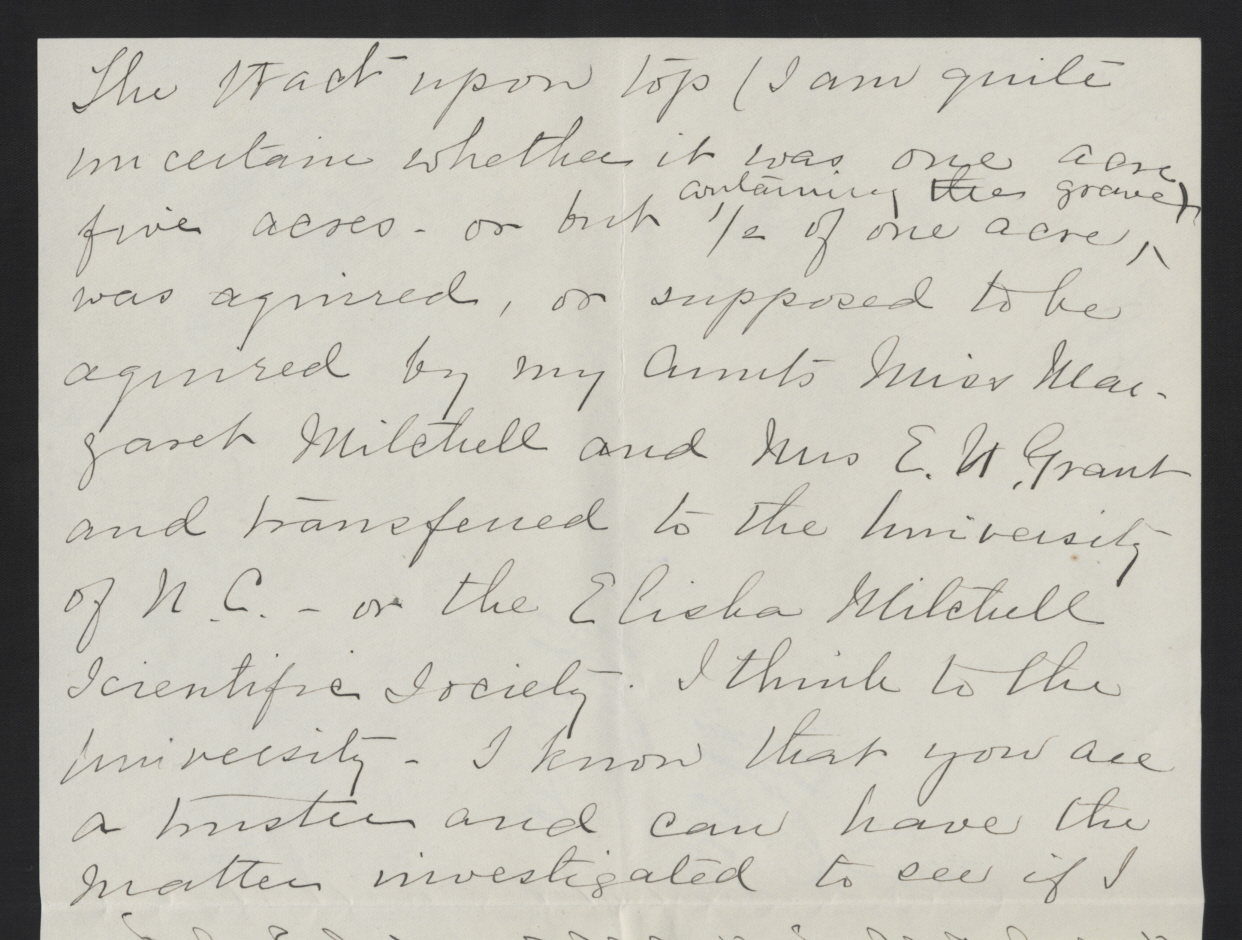 The tract upon top (I am quite
uncertain whether it was one acre,
containing the grave)
five acres - or but 1/2 of one acre,
was aquired, or supposed to be
aquired by my aunts Miss Mar-
garet Mitchell and Mrs E. N. Grant
and transferred to the University
of N. C. - or the Elisha Mitchell
Scientific Society. I think to the
University - I know that you are
a trustee and can have the
matter investigated to see if I